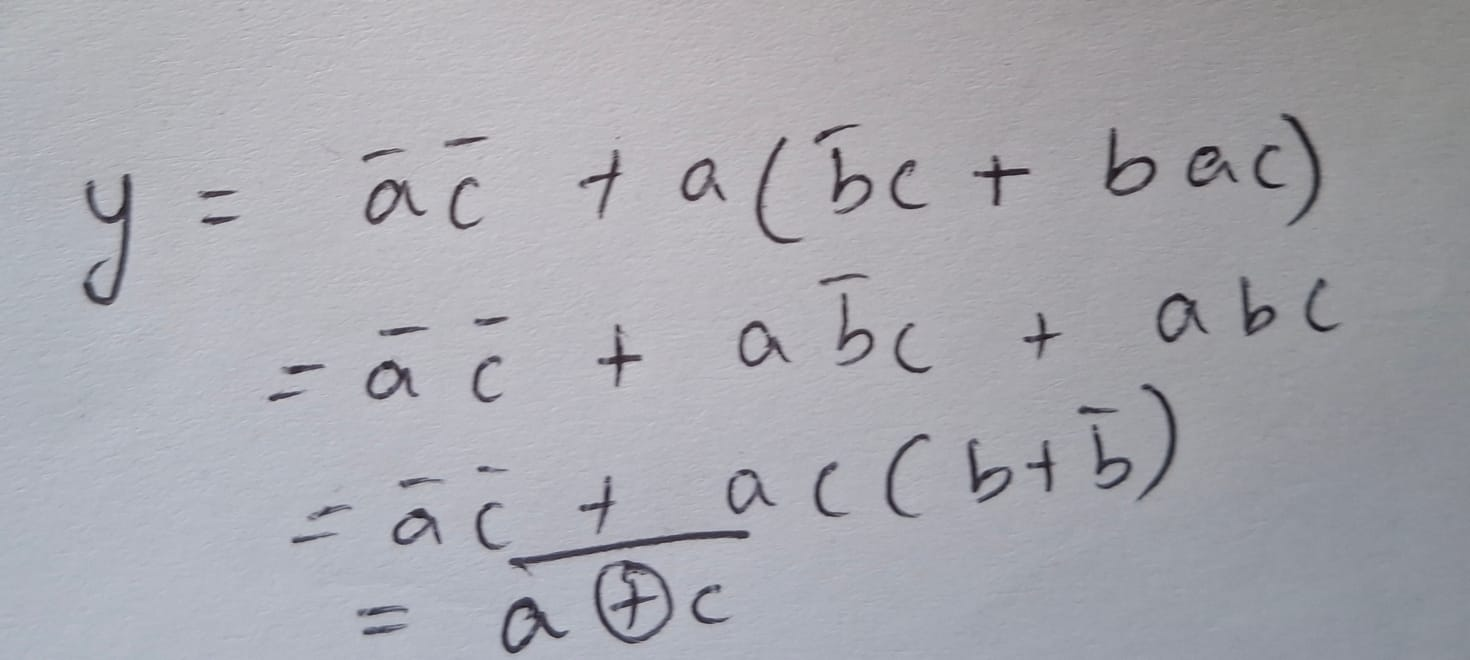 y = a̅ c̅ + a(b̅c + bac)
= a̅ c̅ + a b̅c + abc
= a̅ c̅ + ac(b+b̅)
= a̅ ̅⊕̅ ̅c̅